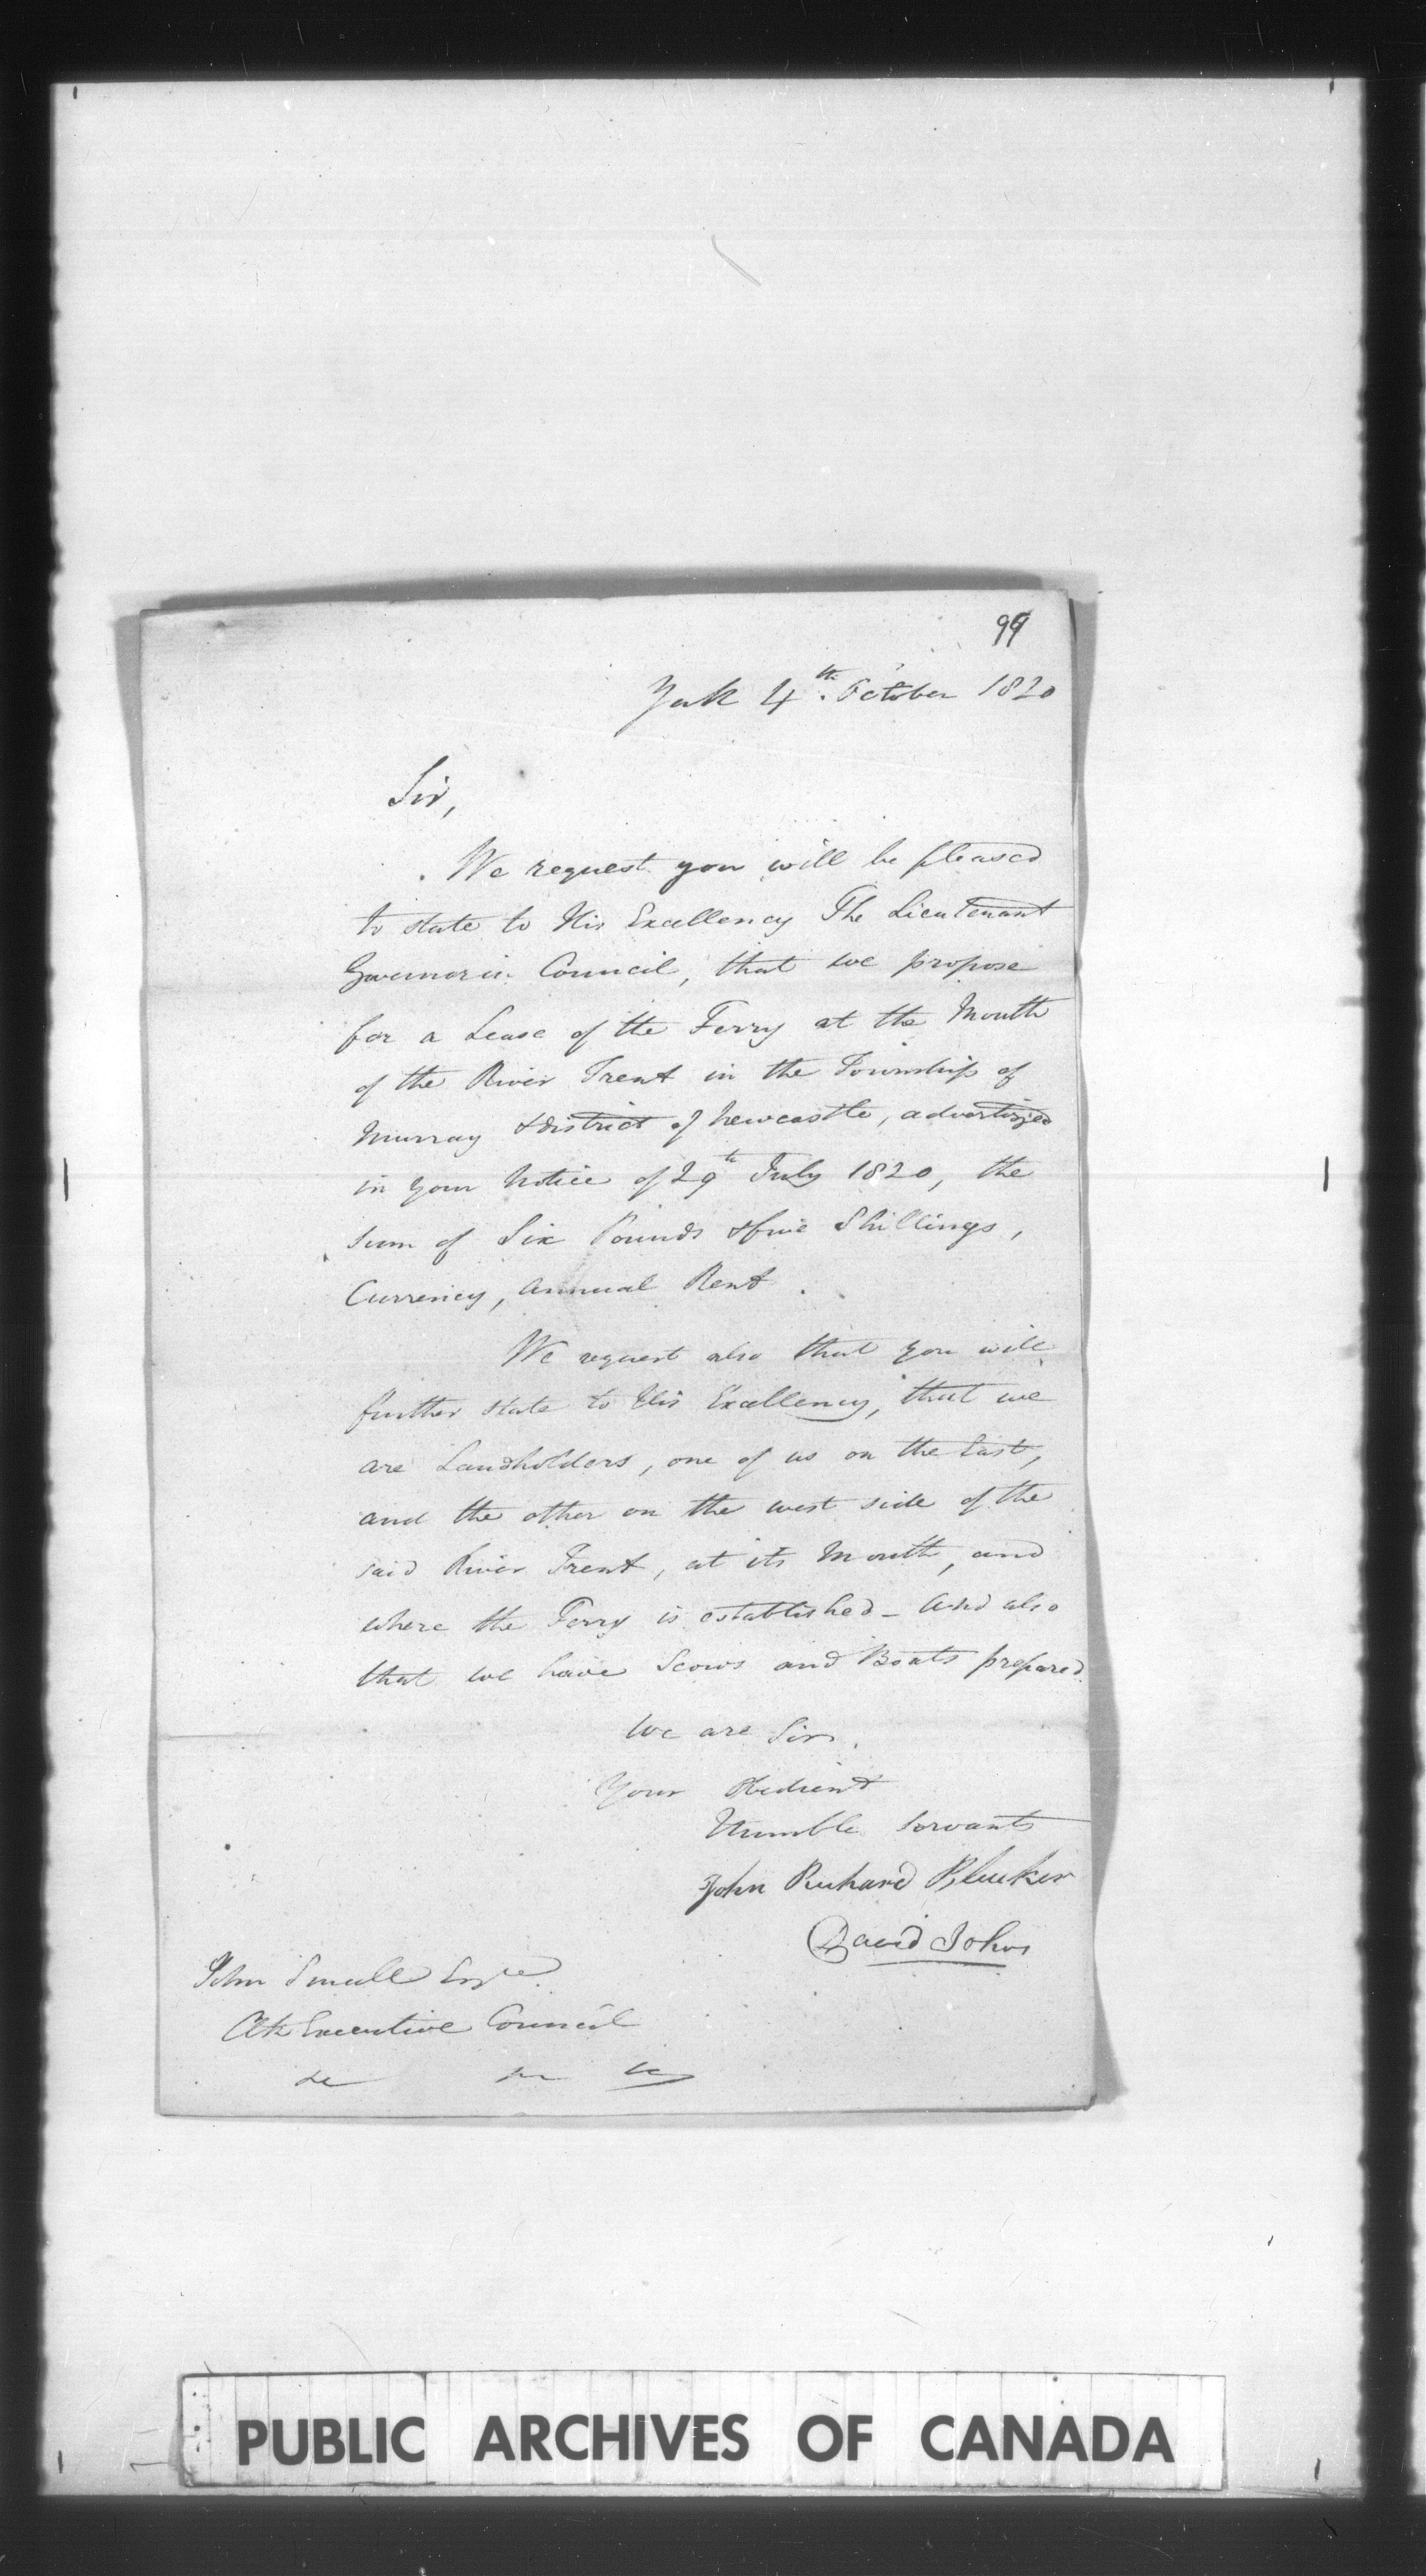 99
York 4th. October 1820
Sir,
We request you will be pleased
to state to His Excellency The Lieutenant
Governor in Council, that we propose
for a Lease of the Ferry at the Mouth
of the River Trent in the Township of
Murray & district of Newcastle, advertized
in your Notice of 29th July 1820, the
sum of Six Pounds & five Shillings,
Currency, annual Rent.
We request also that you will
further state to His Excellency, that we
are Landholders, one of us on the East,
and the other on the west side of the
said River Trent, at its Mouth, and
where the Ferry is established - And also
that we have Scows and Boats prepared
We are Sir,
Your Obedient
Humble Servants
John Richard Bleeker
David Johns
John Small Esqre.
Clk Executive Council
PUBLIC ARCHIVES OF CANADA